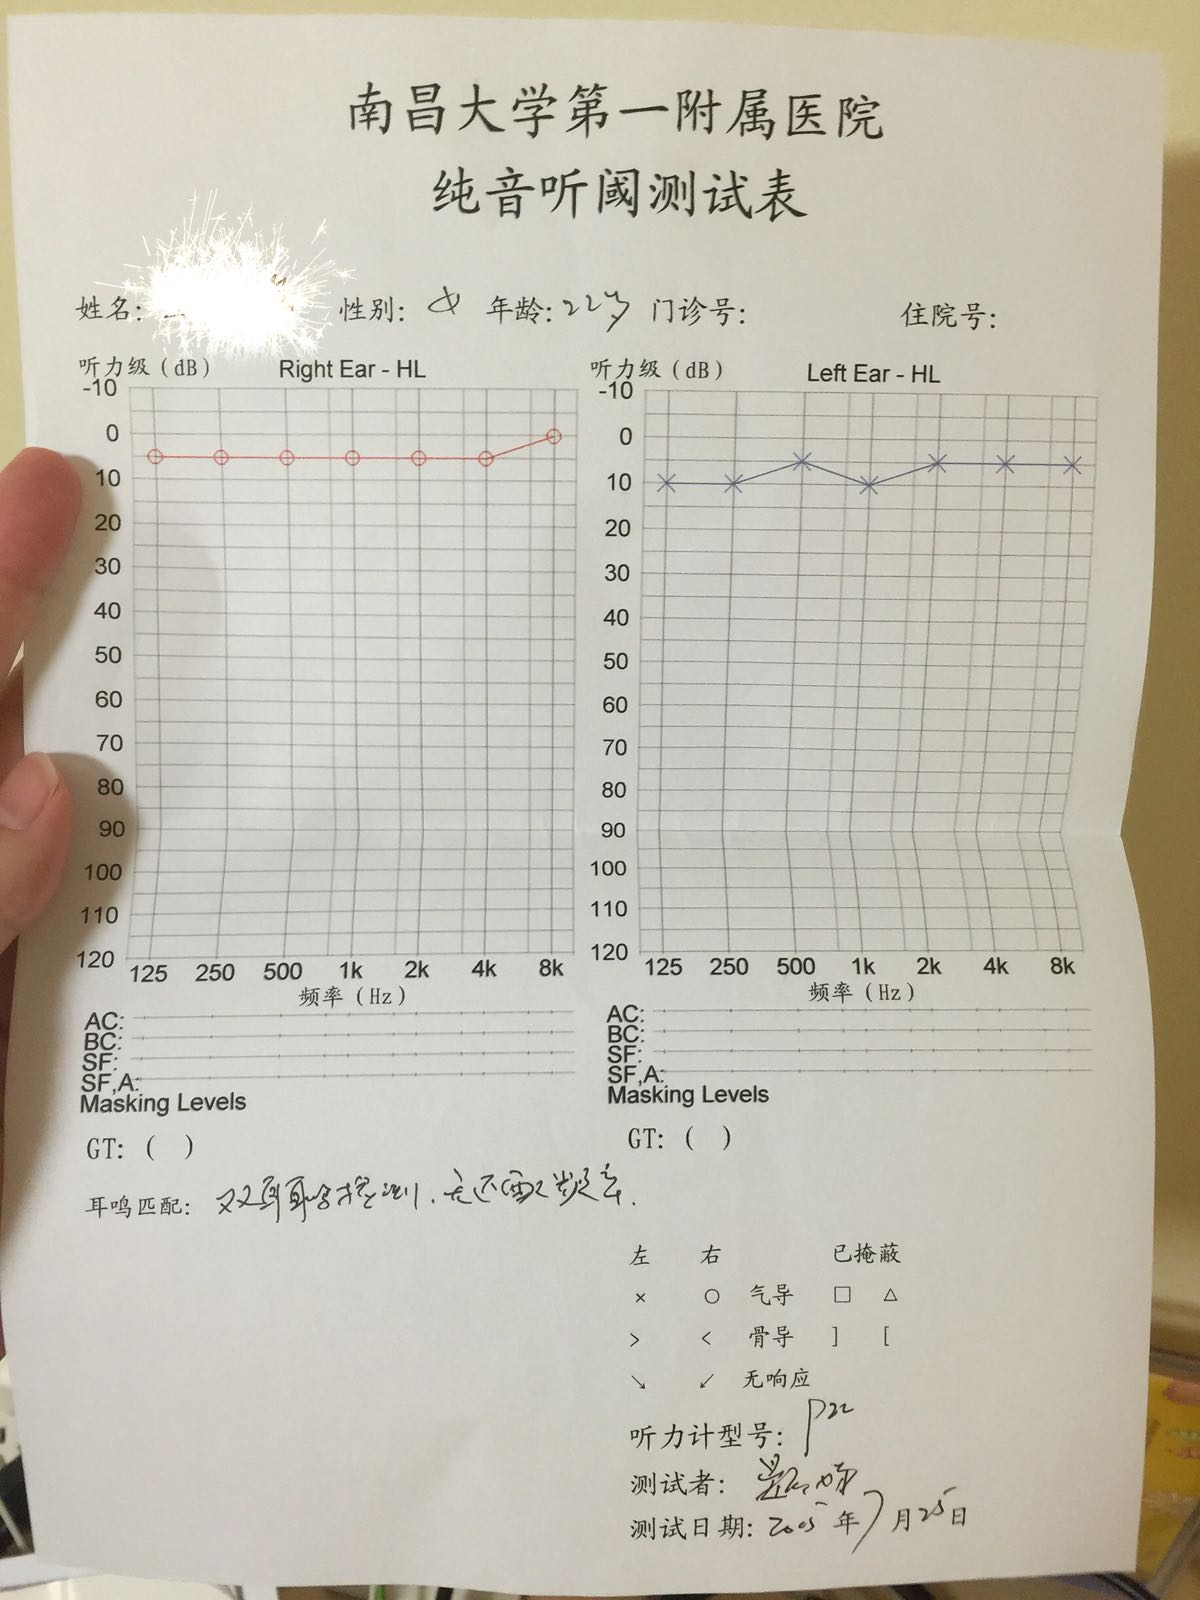 南昌大学第一附属医院
纯音听阈测试表
姓名: 性别: 年龄: 22岁 门诊号: 住院号:
听力级(dB) Right Ear - HL
-10
0
10
20
30
40
50
60
70
80
90
100
110
120
125 250 500 1k 2k 4k 8k
频率(Hz)
AC:
BC:
SF:
SF,A:
Masking Levels
GT: ( )
听力级(dB) Left Ear - HL
-10
0
10
20
30
40
50
60
70
80
90
100
110
120
125 250 500 1k 2k 4k 8k
频率(Hz)
AC:
BC:
SF:
SF,A:
Masking Levels
GT: ( )
耳鸣匹配: 双耳耳鸣检测,
左 右 已掩蔽
× ○ 气导 □ △
> < 骨导 ] [
↘ ↙ 无响应
听力计型号:
测试者:
测试日期: 年7月25日